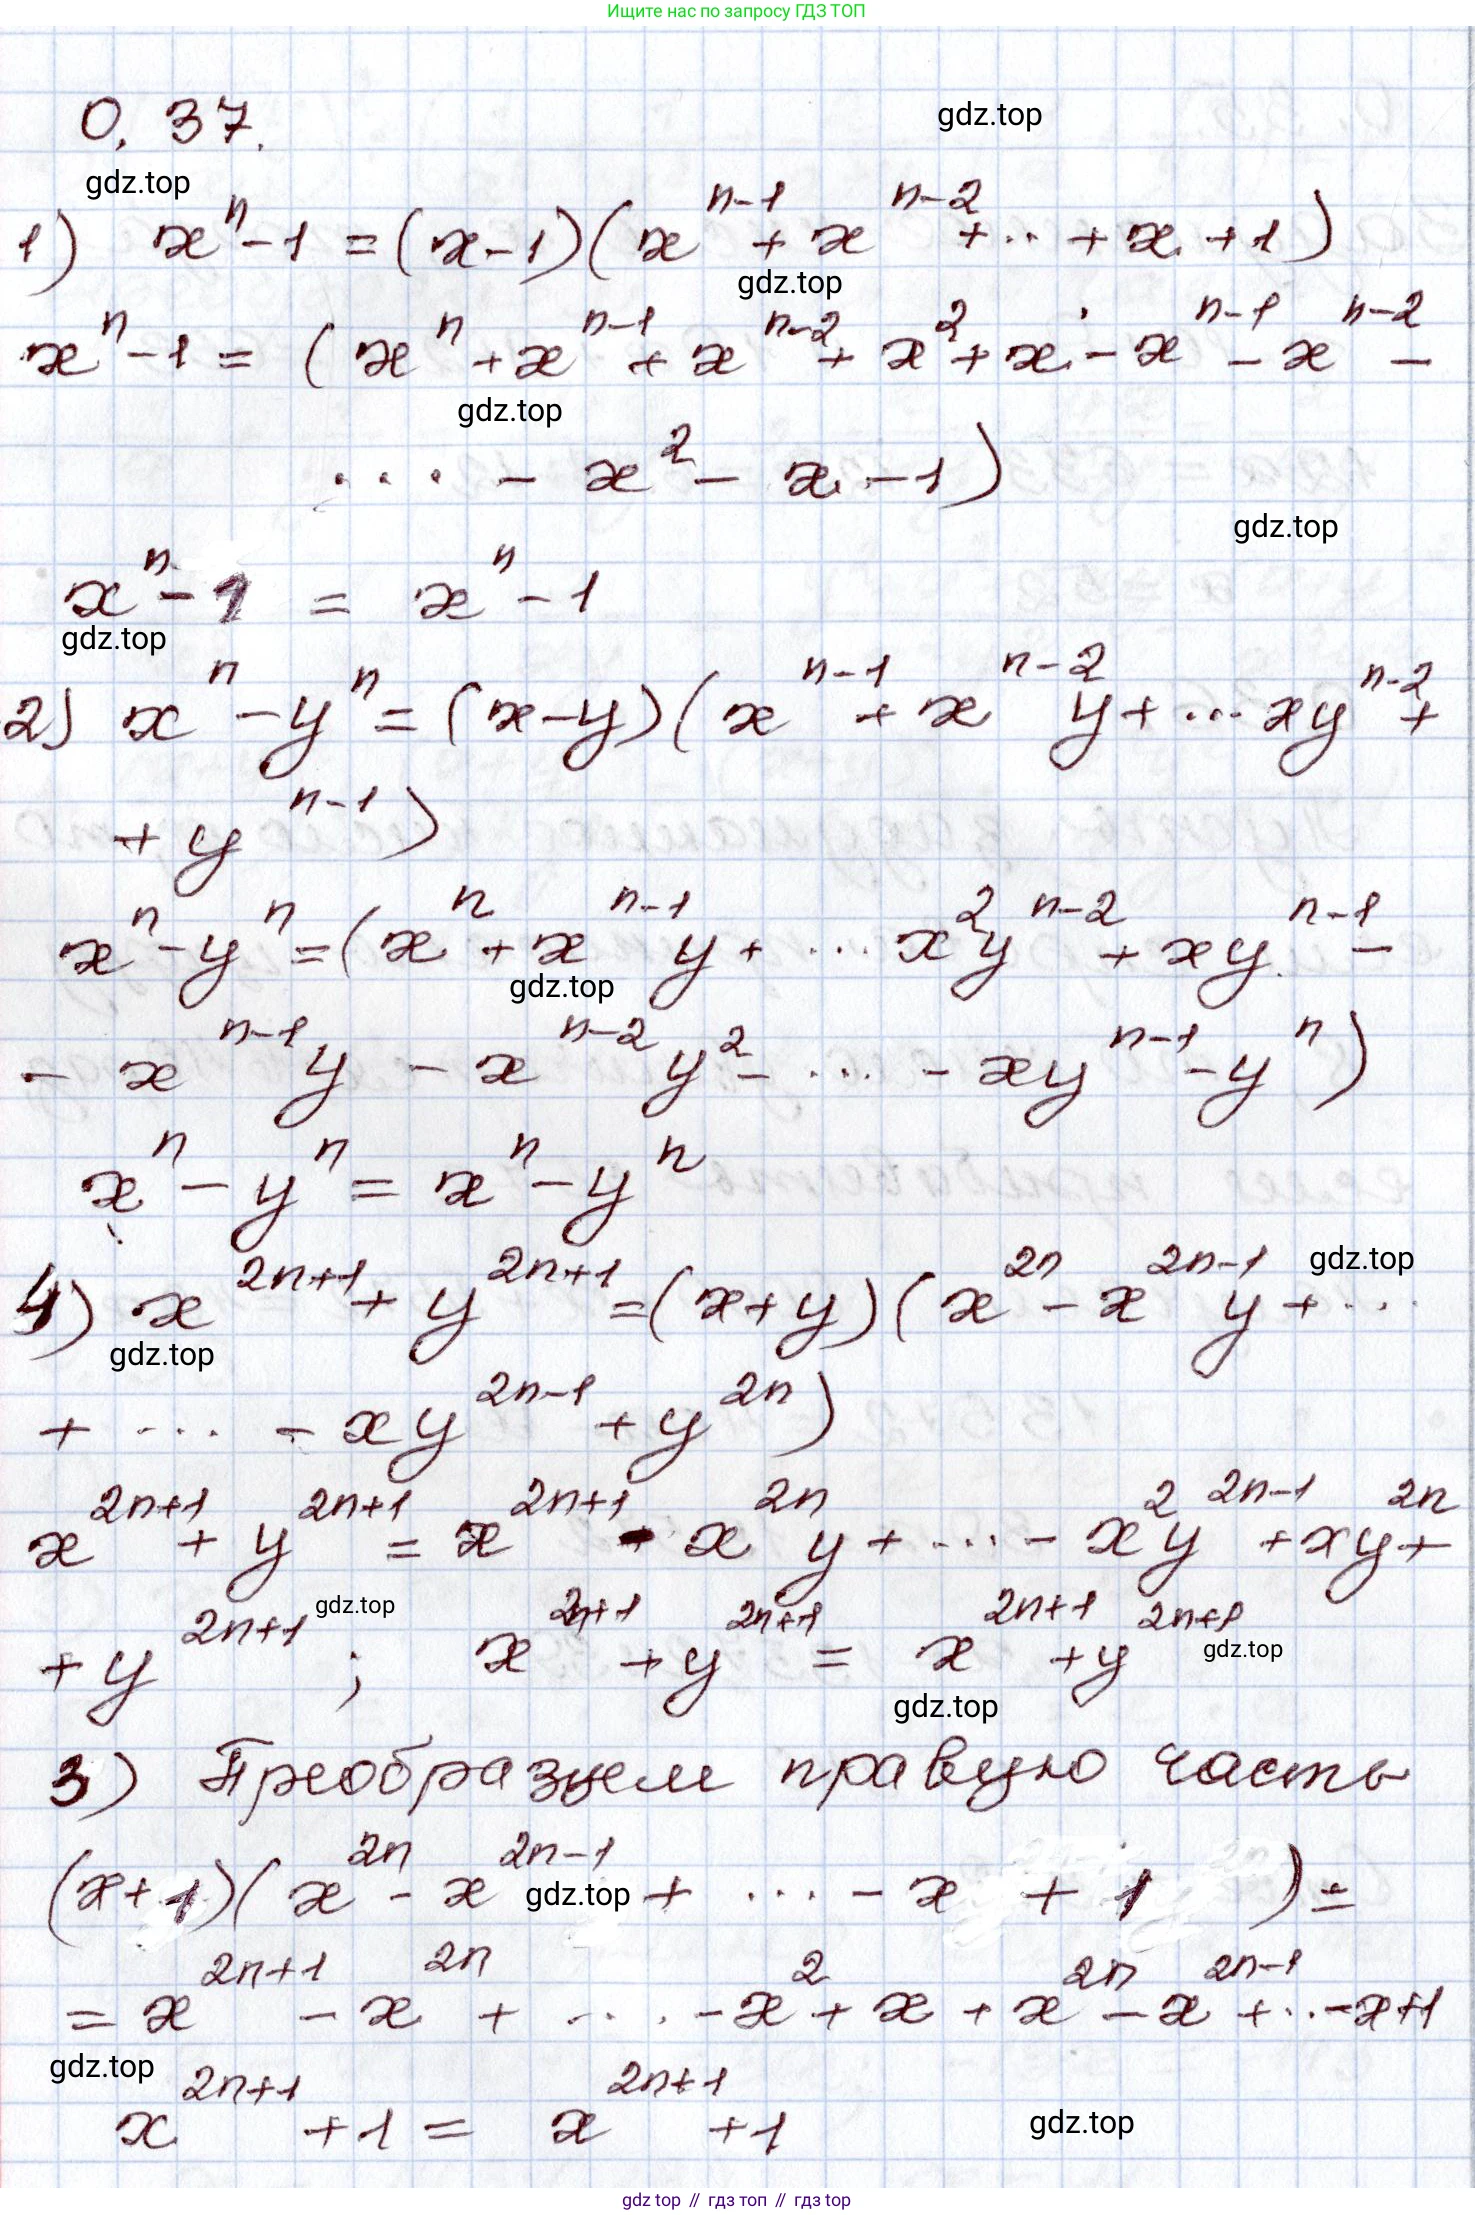 Ищите нас по запросу ГДЗ ТОП
0.37.
gdz.top
gdz.top
1) xⁿ - 1 = (x - 1)(xⁿ⁻¹ + xⁿ⁻² + ... + x + 1)
gdz.top
xⁿ - 1 = (xⁿ + xⁿ⁻¹ + xⁿ⁻² + x² + x - xⁿ⁻¹ - xⁿ⁻² -
gdz.top
.... - x² - x - 1)
gdz.top
xⁿ - 1 = xⁿ - 1
gdz.top
2) xⁿ - yⁿ = (x - y)(xⁿ⁻¹ + xⁿ⁻²y + ... xyⁿ⁻² +
+ yⁿ⁻¹)
xⁿ - yⁿ = (xⁿ + xⁿ⁻¹y + ... x²yⁿ⁻² + xyⁿ⁻¹ -
gdz.top
- xⁿ⁻¹y - xⁿ⁻²y² - ... - xyⁿ⁻¹ - yⁿ)
xⁿ - yⁿ = xⁿ - yⁿ
gdz.top
4) x²ⁿ⁺¹ + y²ⁿ⁺¹ = (x + y)(x²ⁿ - x²ⁿ⁻¹y + ...
gdz.top
+ ... - xy²ⁿ⁻¹ + y²ⁿ)
x²ⁿ⁺¹ + y²ⁿ⁺¹ = x²ⁿ⁺¹ - x²ⁿy + ... - x²y²ⁿ⁻¹ + xy²ⁿ +
gdz.top
+ y²ⁿ⁺¹ ; x²ⁿ⁺¹ + y²ⁿ⁺¹ = x²ⁿ⁺¹ + y²ⁿ⁺¹
gdz.top
gdz.top
3) Преобразуем правую часть
(x + 1)(x²ⁿ - x²ⁿ⁻¹ + ... - x + 1) =
gdz.top
= x²ⁿ⁺¹ - x²ⁿ + .... - x² + x + x²ⁿ - x²ⁿ⁻¹ + ... - x + 1
gdz.top
x²ⁿ⁺¹ + 1 = x²ⁿ⁺¹ + 1
gdz.top
gdz top // гдз топ // гдз top